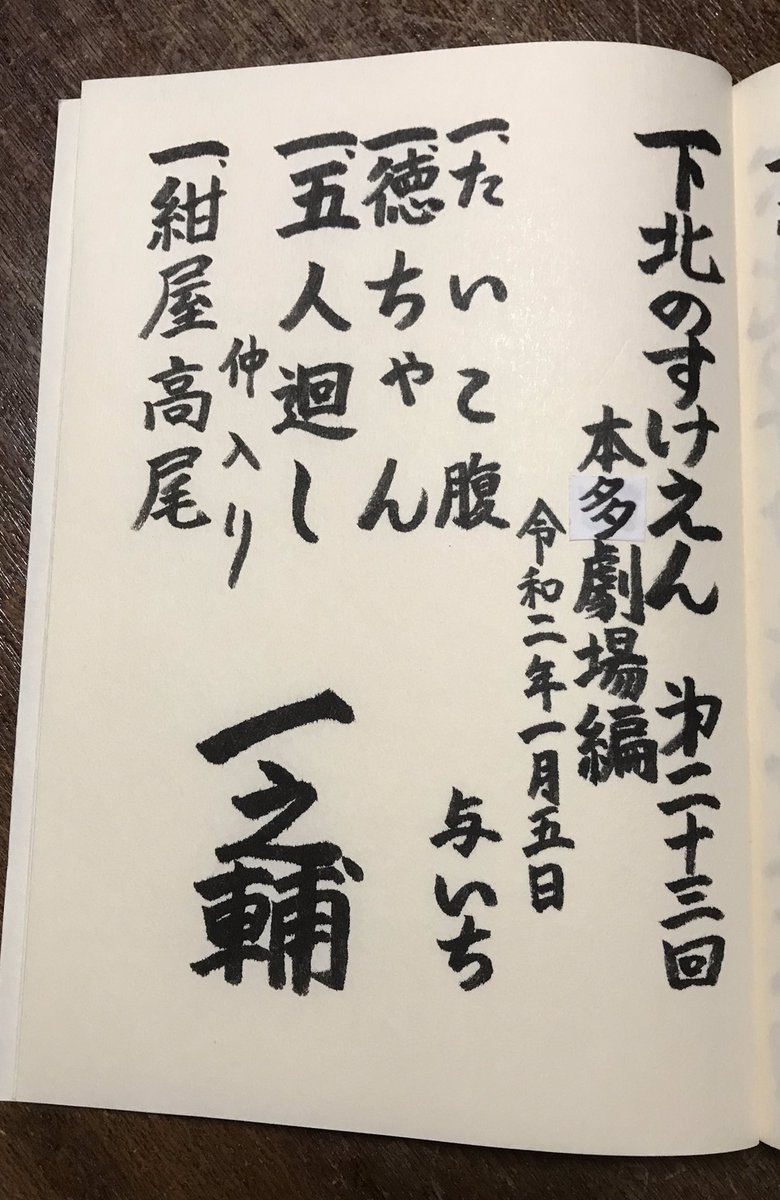 下北のすけえん 第二十三回
本多劇場編
令和二年一月五日
一、たいこ腹 与いち
一、徳ちゃん
一、五人廻し
仲入り
一、紺屋高尾
一之輔